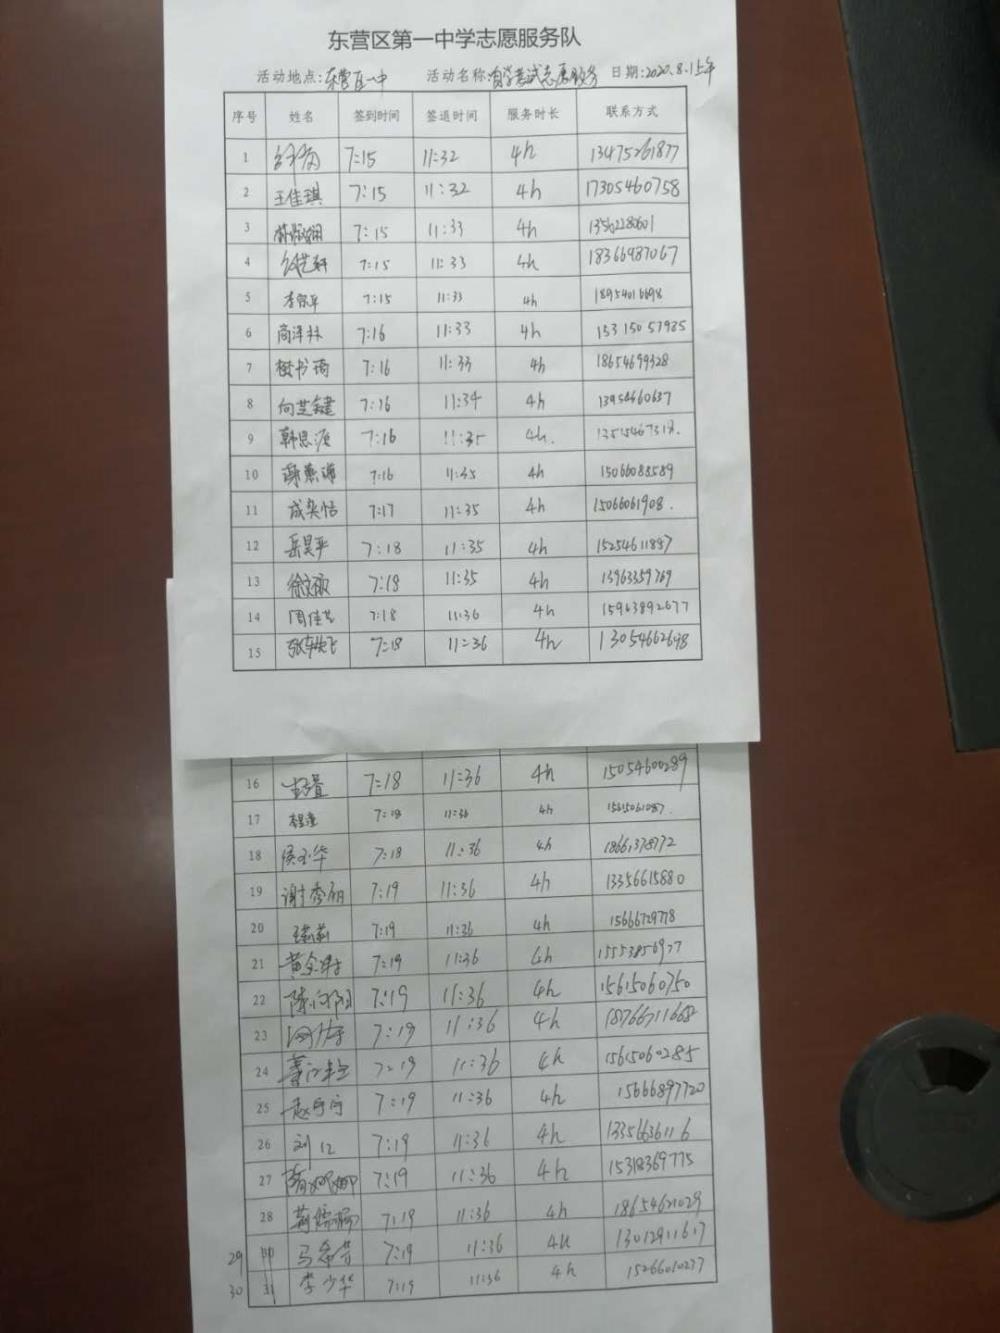 东营区第一中学志愿服务队
活动地点:东营区一中 活动名称:自学考试志愿服务 日期:2020.8.1上午
序号 姓名 签到时间 签退时间 服务时长 联系方式
1 7:15 11:32 4h 13475261877
2 王佳琪 7:15 11:32 4h 17305460758
3 7:15 11:33 4h 13562280601
4 7:15 11:33 4h 18366987067
5 7:15 11:33 4h 18954016698
6 商泽林 7:16 11:33 4h 15315057985
7 7:16 11:33 4h 18654699328
8 向芝键 7:16 11:34 4h 13954660637
9 韩思源 7:16 11:35 4h.
10 7:16 11:35 4h 15066088589
11 成奕恬 7:17 11:35 4h 15066061908.
12 岳昊平 7:18 11:35 4h 15254611897
13 7:18 11:35 4h 13963359769
14 周佳艺 7:18 11:36 4h 15963892677
15 7:18 11:36 4h 13054662698
16 7:18 11:36 4h 15054600289
17 7:18 11:36 4h
18 侯玉华 7:18 11:36 4h 18661378772
19 谢秀丽 7:19 11:36 4h 13356615880
20 7:19 11:36 4h 15666729778
21 7:19 11:36 4h 15553856977
22 陈向阳 7:19 11:36 4h 15615060750
23 7:19 11:36 4h 18766711668
24 7:19 11:36 4h 15615060285
25 赵宁宁 7:19 11:36 4h 15666897720
26 刘江 7:19 11:36 4h 13356636116
27 隋娜娜 7:19 11:36 4h 15318369775
28 7:19 11:36 4h 18654621029
29 马希芳 7:19 11:36 4h 13012911617
30 31 李少华 7:19 11:36 4h 15266010237